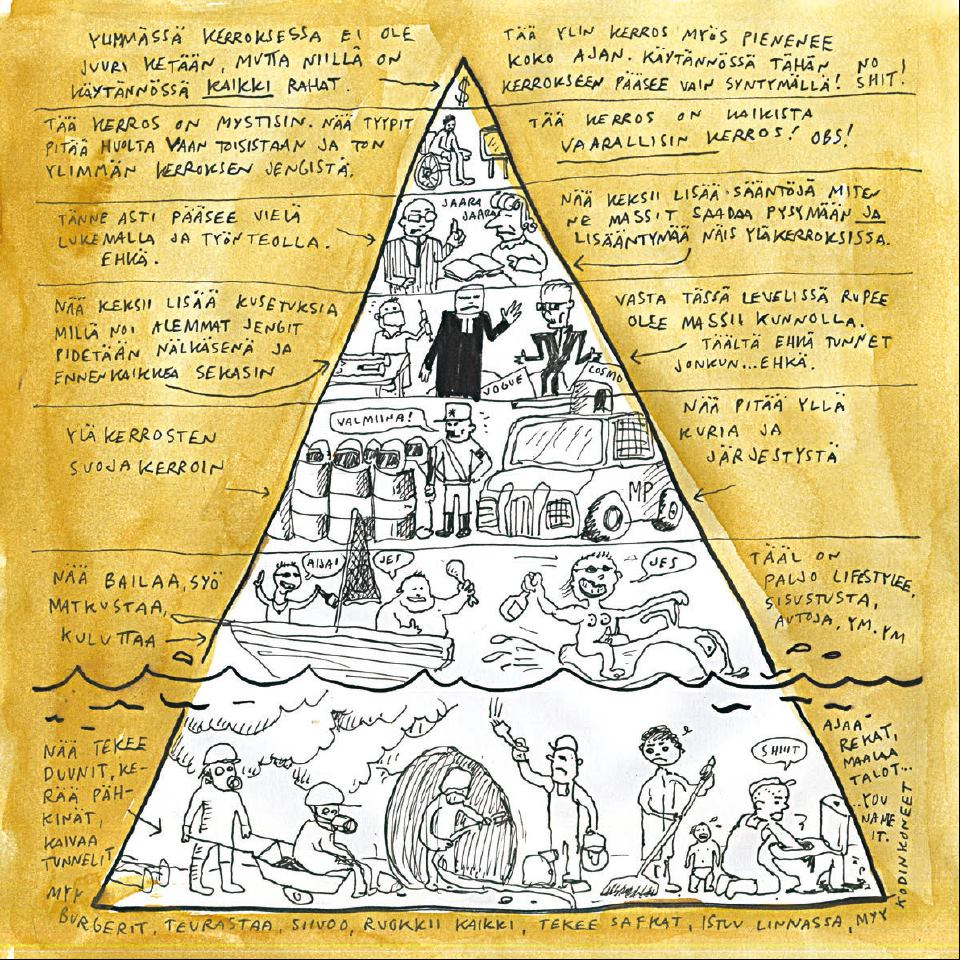 YLIMMÄSSÄ KERROKSESSA EI OLE
JUURI KETÄÄN, MUTTA NIILLÄ ON
KÄYTÄNNÖSSÄ KAIKKI RAHAT.
TÄÄ YLIN KERROS MYÖS PIENENEE
KOKO AJAN. KÄYTÄNNÖSSÄ TÄHÄN
KERROKSEEN PÄÄSEE VAIN SYNTYMÄLLÄ!
NO SHIT!
$
TÄÄ KERROS ON MYSTISIN. NÄÄ TYYPIT
PITÄÄ HUOLTA VAAN TOISISTAAN JA TON
YLIMMÄN KERROKSEN JENGISTÄ.
TÄÄ KERROS ON KAIKISTA
VAARALLISIN KERROS! OBS!
TÄNNE ASTI PÄÄSEE VIELÄ
LUKEMALLA JA TYÖNTEOLLA.
EHKÄ.
JAARA
JAARA
NÄÄ KEKSII LISÄÄ SÄÄNTÖJÄ MITEN
NE MASSIT SAADAA PYSYMÄÄN JA
LISÄÄNTYMÄÄ NÄIS YLÄKERROKSISSA.
NÄÄ KEKSII LISÄÄ KUSETUKSIA
MILLÄ NOI ALEMMAT JENGIT
PIDETÄÄN NÄLKÄSENÄ JA
ENNENKAIKKEA SEKASIN
VOGUE
COSMO
VASTA TÄSSÄ LEVELISSÄ RUPEE
OLEE MASSII KUNNOLLA.
TÄÄLTÄ EHKÄ TUNNET
JONKUN...EHKÄ.
YLÄKERROSTEN
SUOJAKERROIN
VALMIINA!
MP
NÄÄ PITÄÄ YLLÄ
KURIA JA
JÄRJESTYSTÄ
NÄÄ BAILAA, SYÖ
MATKUSTAA,
KULUTTAA
AIJAI
JES
JES
TÄÄL ON
PALJO LIFESTYLEE,
SISUSTUSTA,
AUTOJA, YM. YM
NÄÄ TEKEE
DUUNIT, KE-
RÄÄ PÄH-
KINÄT,
KAIVAA
TUNNELIT
MYY
BURGERIT, TEURASTAA, SIIVOO, RUOKKII KAIKKI, TEKEE SAFKAT, ISTUU LINNASSA, MYY
KODINKONEET
SHIIIT
?
AJAA
REKAT,
MAALAA
TALOT...
...YOU
NAME
IT.